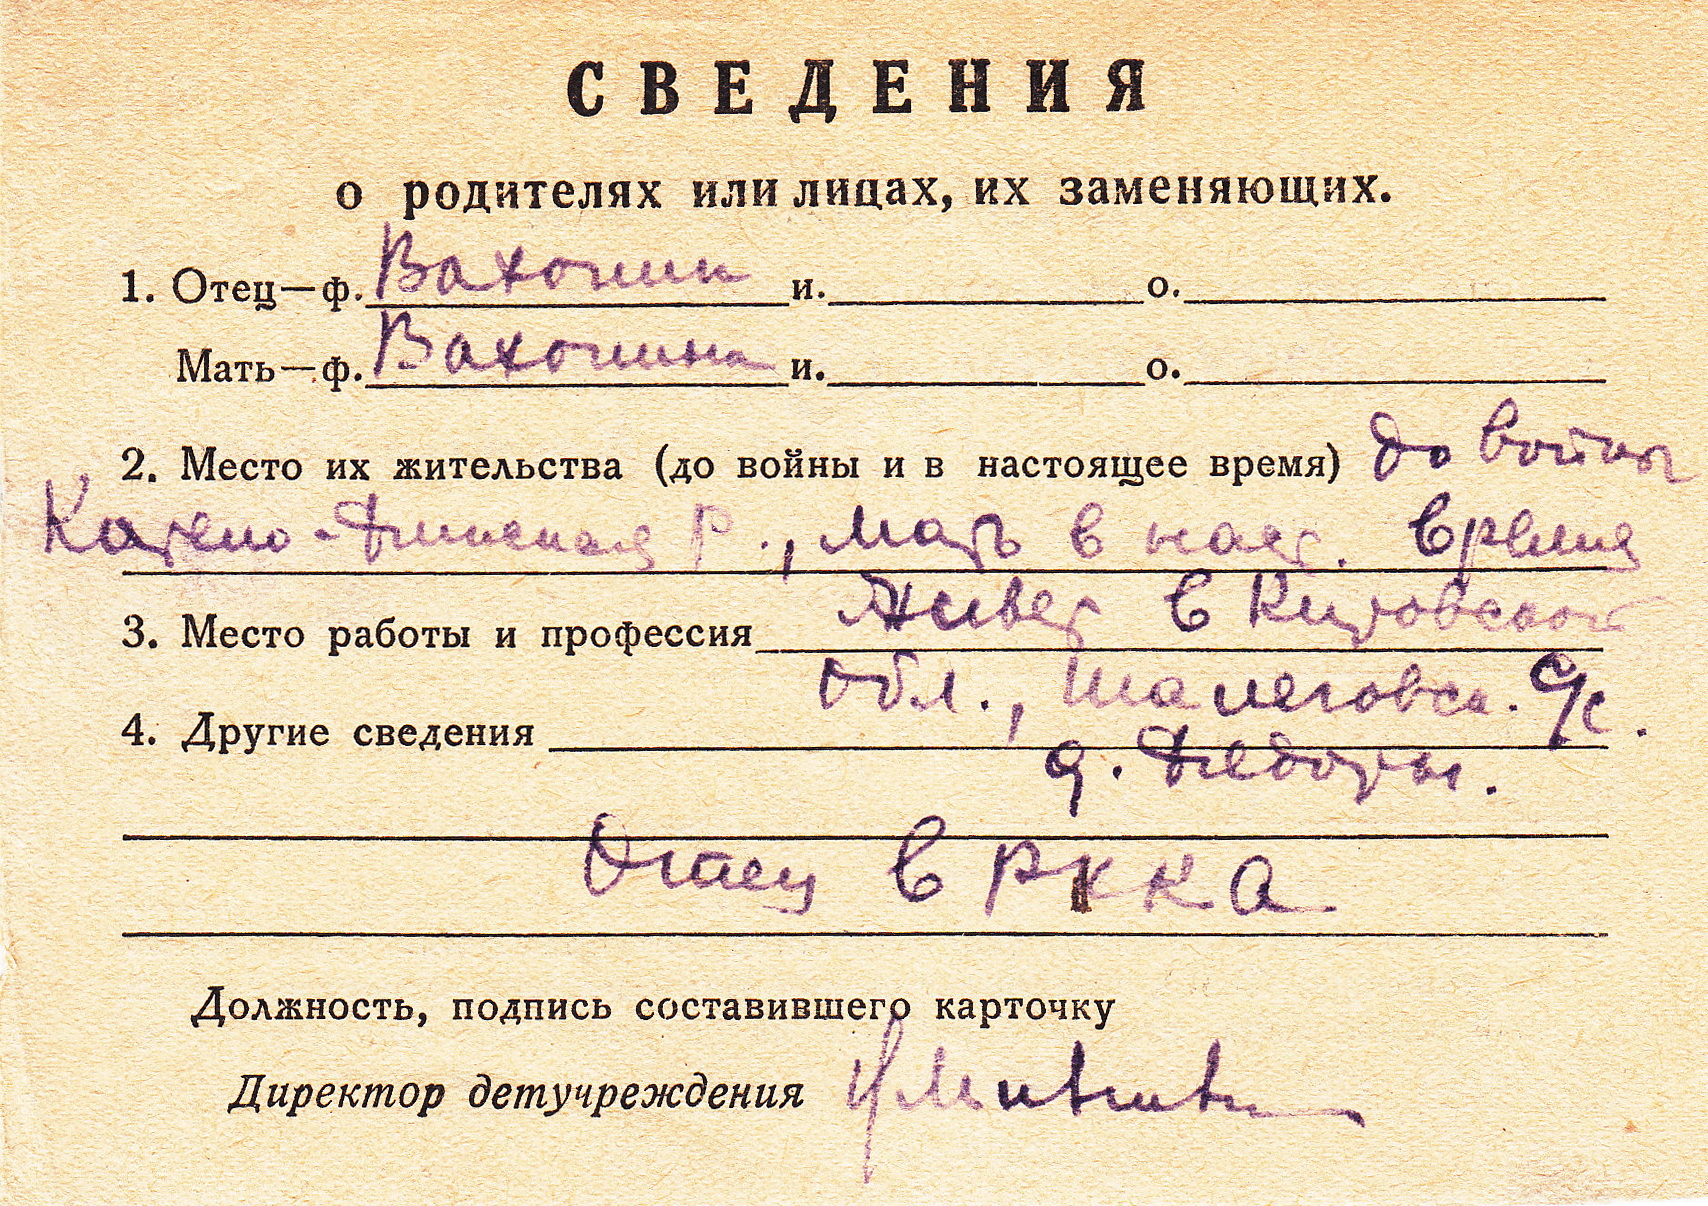 СВЕДЕНИЯ
о родителях или лицах, их заменяющих.
1. Отец—ф. Вахонин и. о.
Мать—ф. Вахонина и. о.
2. Место их жительства (до войны и в настоящее время) до войны
Карело-Финская Р., мать в наст. время
3. Место работы и профессия живет в Кировской
обл., Шалеговск. с/с.
4. Другие сведения
д.
Отец в РККА
Должность, подпись составившего карточку
Директор детучреждения